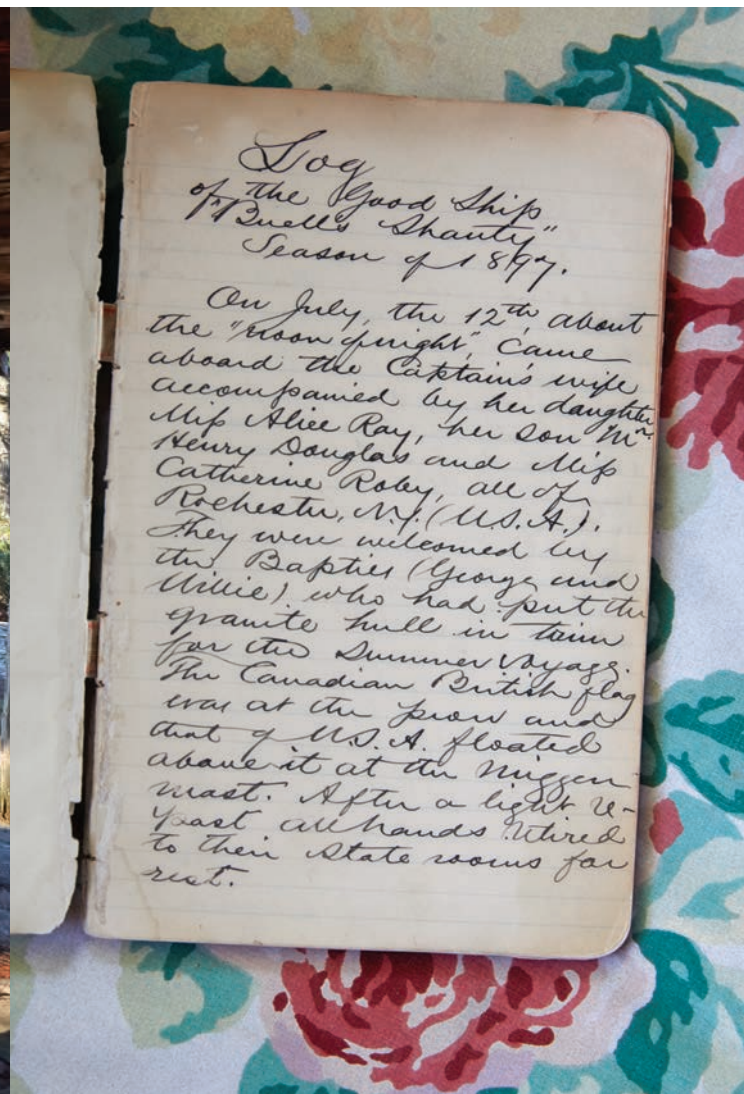 Log
of the Good Ship
"Buell's Shanty"
Season of 1897.
On July, the 12th, about
the "noon of night", came
aboard the Captain's wife
accompanied by her daughter
Miss Alice Ray, her son Mr.
Henry Douglas and Miss
Catherine Roby, all of
Rochester, N.Y. (U.S.A.).
They were welcomed by
the Bapties (George and
Willie) who had put the
granite hull in trim
for the Summer voyage.
The Canadian British flag
was at the prow and
that of U.S.A. floated
above it at the mizzen-
mast. After a light re-
past all hands retired
to their state rooms for
rest.